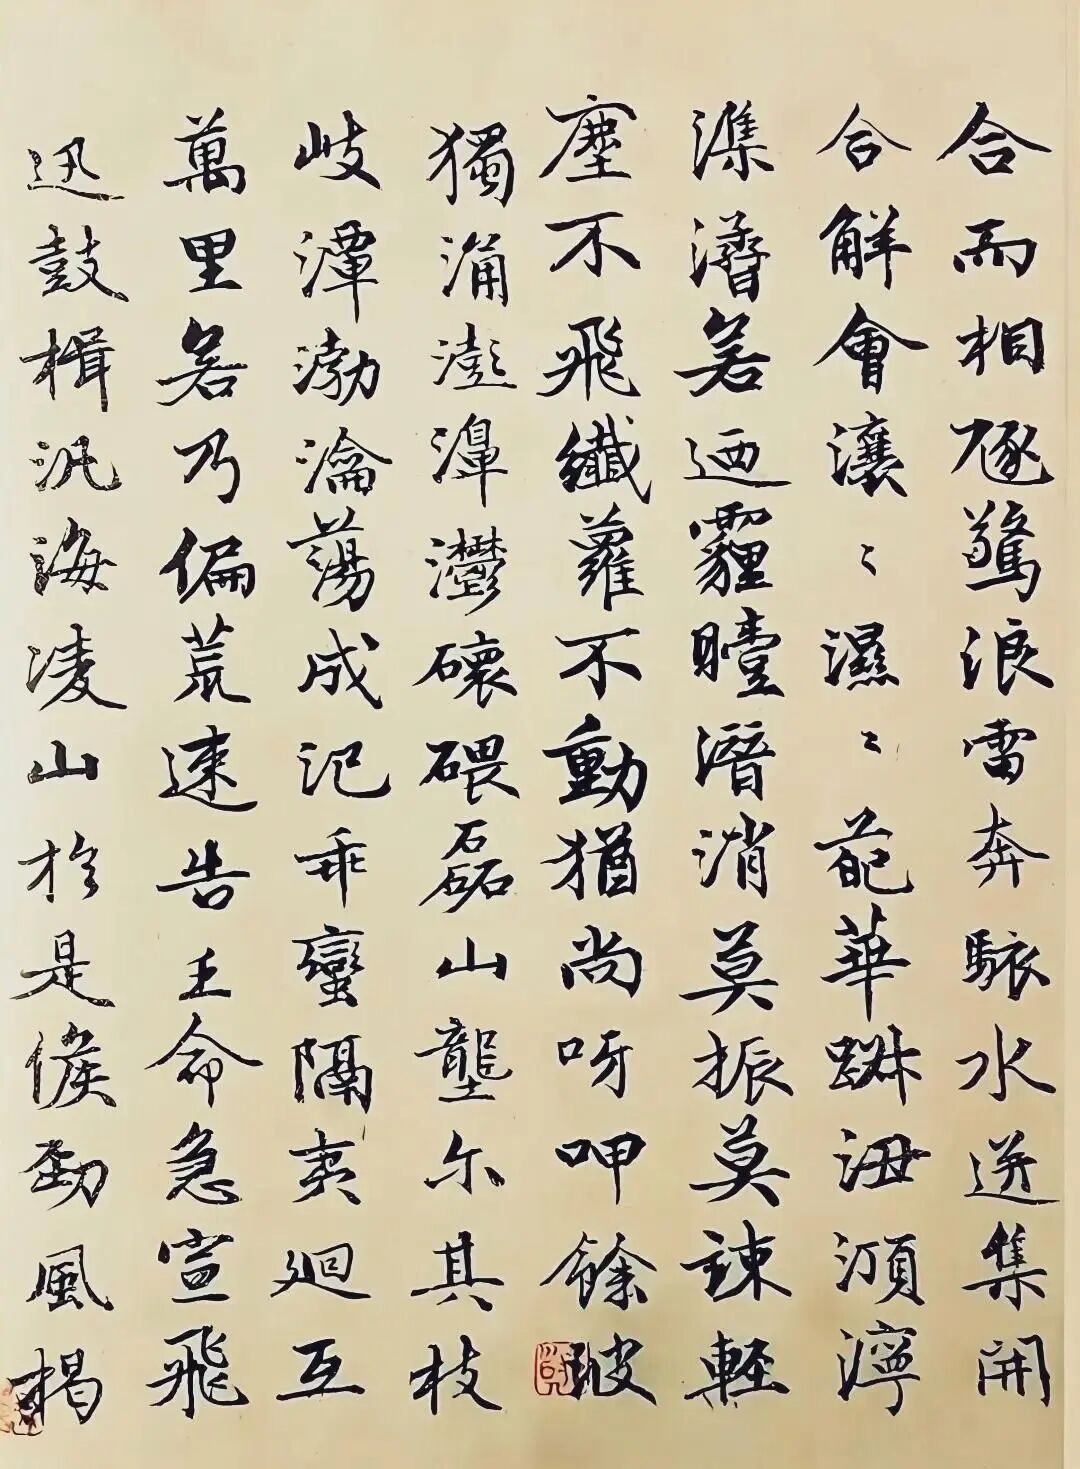 合而相逐驚浪雷奔駭水迸集開
合解會瀼〻濕〻葩華踧沑澒濘
潗㵫若迺霾曀潛消莫振莫竦輕
塵不飛纖蘿不動猶尚呀呷餘波
獨涌澎濞灪䃶碨磊山壟尔其枝
岐潭渤瀹蕩成汜乖蠻隔夷廻互
萬里若乃偏荒速告王命急宣飛
迅鼓楫汎海凌山於是候勁風揭